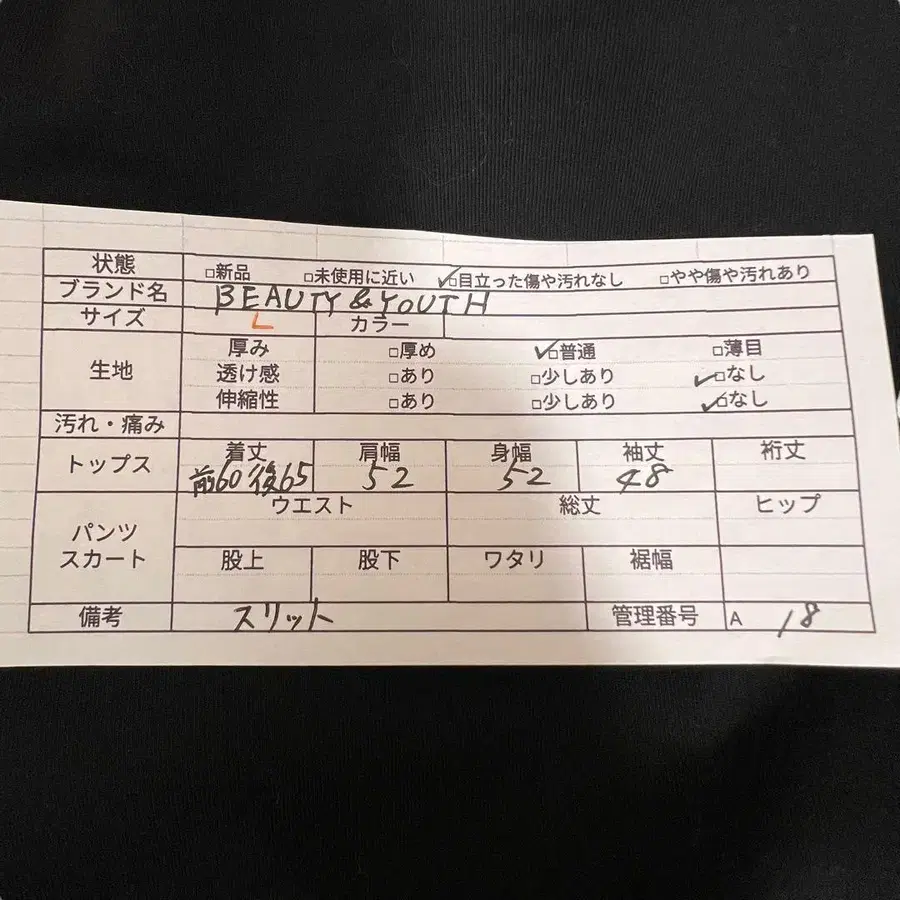 状態 □新品 □未使用に近い ✓□目立った傷や汚れなし □やや傷や汚れあり
ブランド名 BEAUTY & YOUTH
サイズ L カラー
生地 厚み □厚め ✓□普通 □薄目
透け感 □あり □少しあり ✓□なし
伸縮性 □あり □少しあり ✓□なし
汚れ・痛み
トップス 着丈 肩幅 身幅 袖丈 裄丈
前60 後65 52 52 48
パンツ スカート ウエスト 総丈 ヒップ
股上 股下 ワタリ 裾幅
備考 スリット 管理番号 A 18